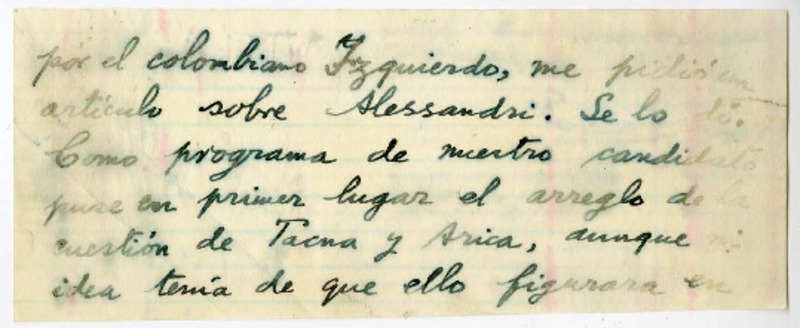 por el colombiano Izquierdo, me pidió un
artículo sobre Alessandri. Se lo di.
Como programa de nuestro candidato
puse en primer lugar el arreglo de la
cuestión de Tacna y Arica, aunque ni
idea tenía de que ello figurara en